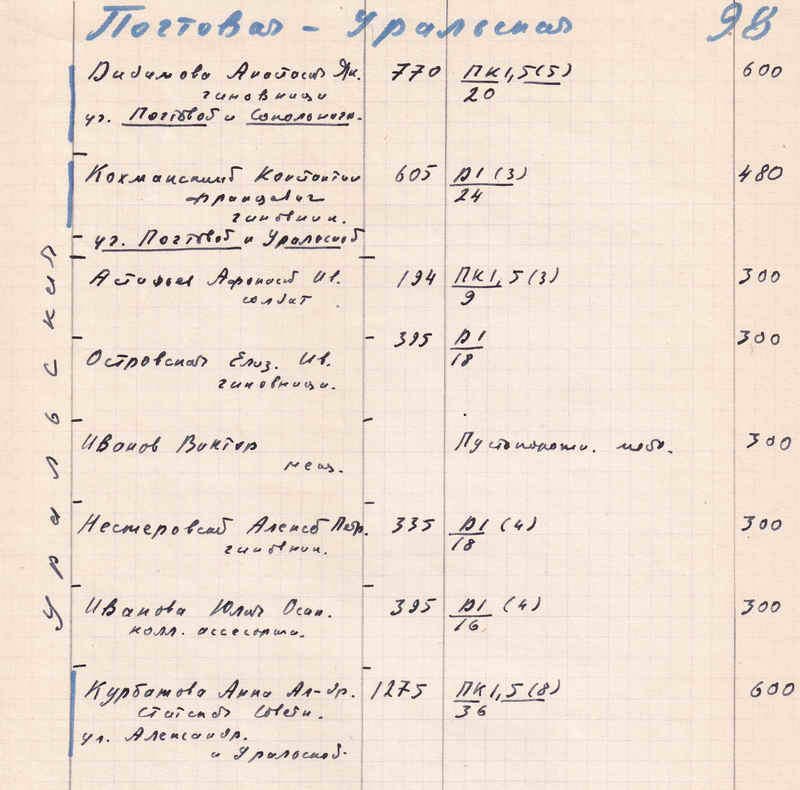 Почтовая - Уральская 98
Анастас Як. 770 ПК1,5(5) 600
чиновницы 20
уг. Почтовой и
Кохманский Константин 605 Д1(3) 480
Францевич 24
чиновник.
уг. Почтовой и Уральской
Астафьев Афонасий Ив. 194 ПК1,5(3) 300
солдат 9
395 Д1 300
Островская Елиз. Ив. 18
чиновница.
Иванов Виктор 300
мещ.
Нестеровский Алексей Петр. 335 Д1(4) 300
чиновник. 18
Иванова Юлия Осип. 395 Д1(4) 300
колл. ассесорша. 16
Курбатова Анна Ал-др. 1275 ПК1,5(8) 600
Статской советн. 36
ул. Александр.
и Уральской.
Уральская